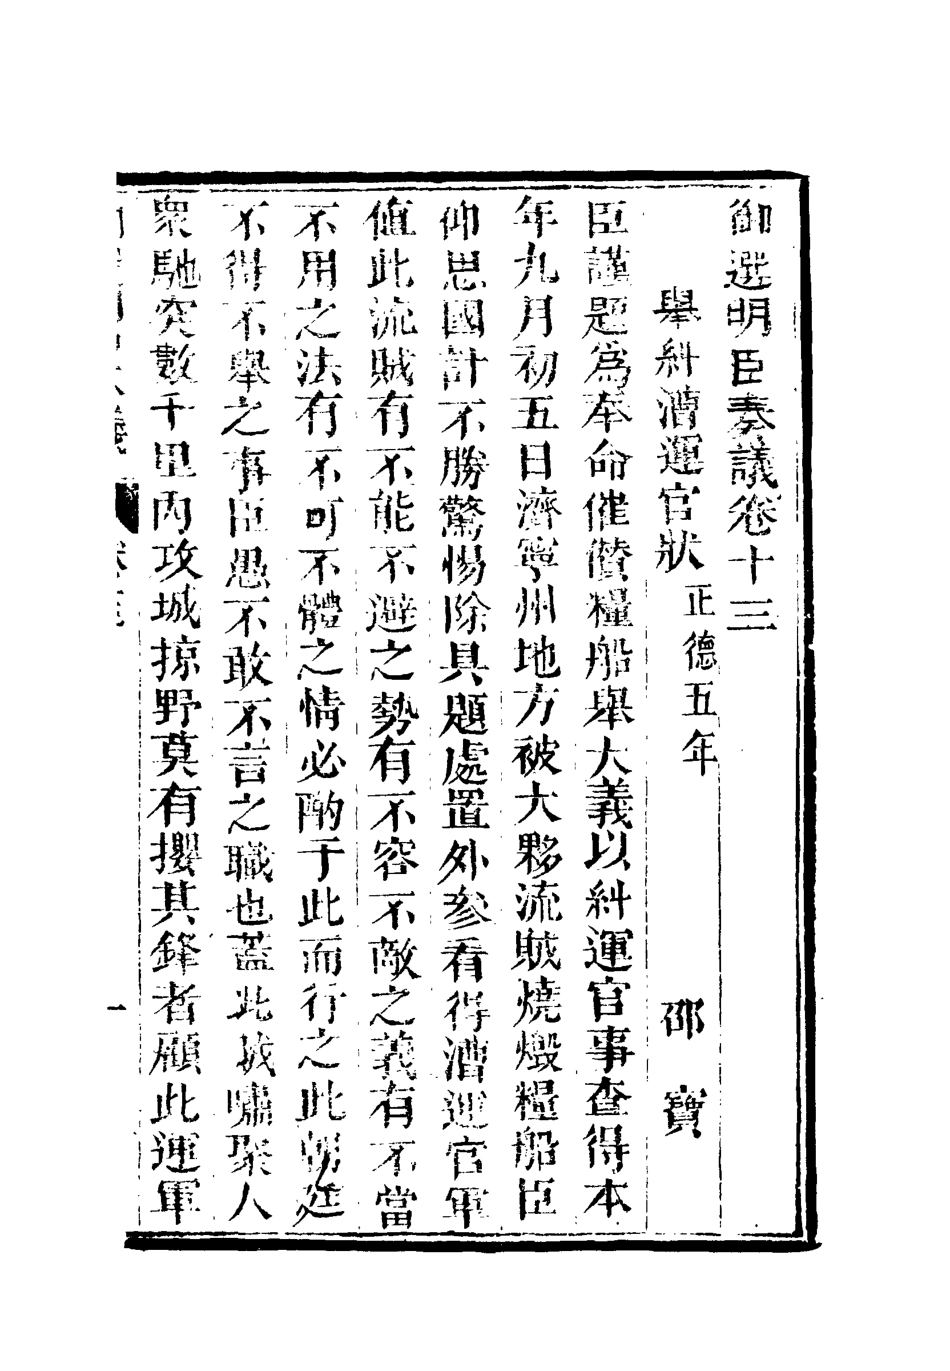 御選明臣奏議卷十三
舉糾漕運官狀 正德五年 邵寶
臣謹題為奉命催儹糧船舉大義以糾運官事查得本
年九月初五日濟寧州地方被大夥流賊燒燬糧船臣
仰思國計不勝驚惕除具題處置外參看得漕運官軍
值此流賊有不能不避之勢有不容不敵之義有不當
不用之法有不可不體之情必酌于此而行之此朝廷
不得不舉之事臣愚不敢不言之職也蓋此賊嘯聚人
衆馳突數千里內攻城掠野莫有攖其鋒者顧此運軍